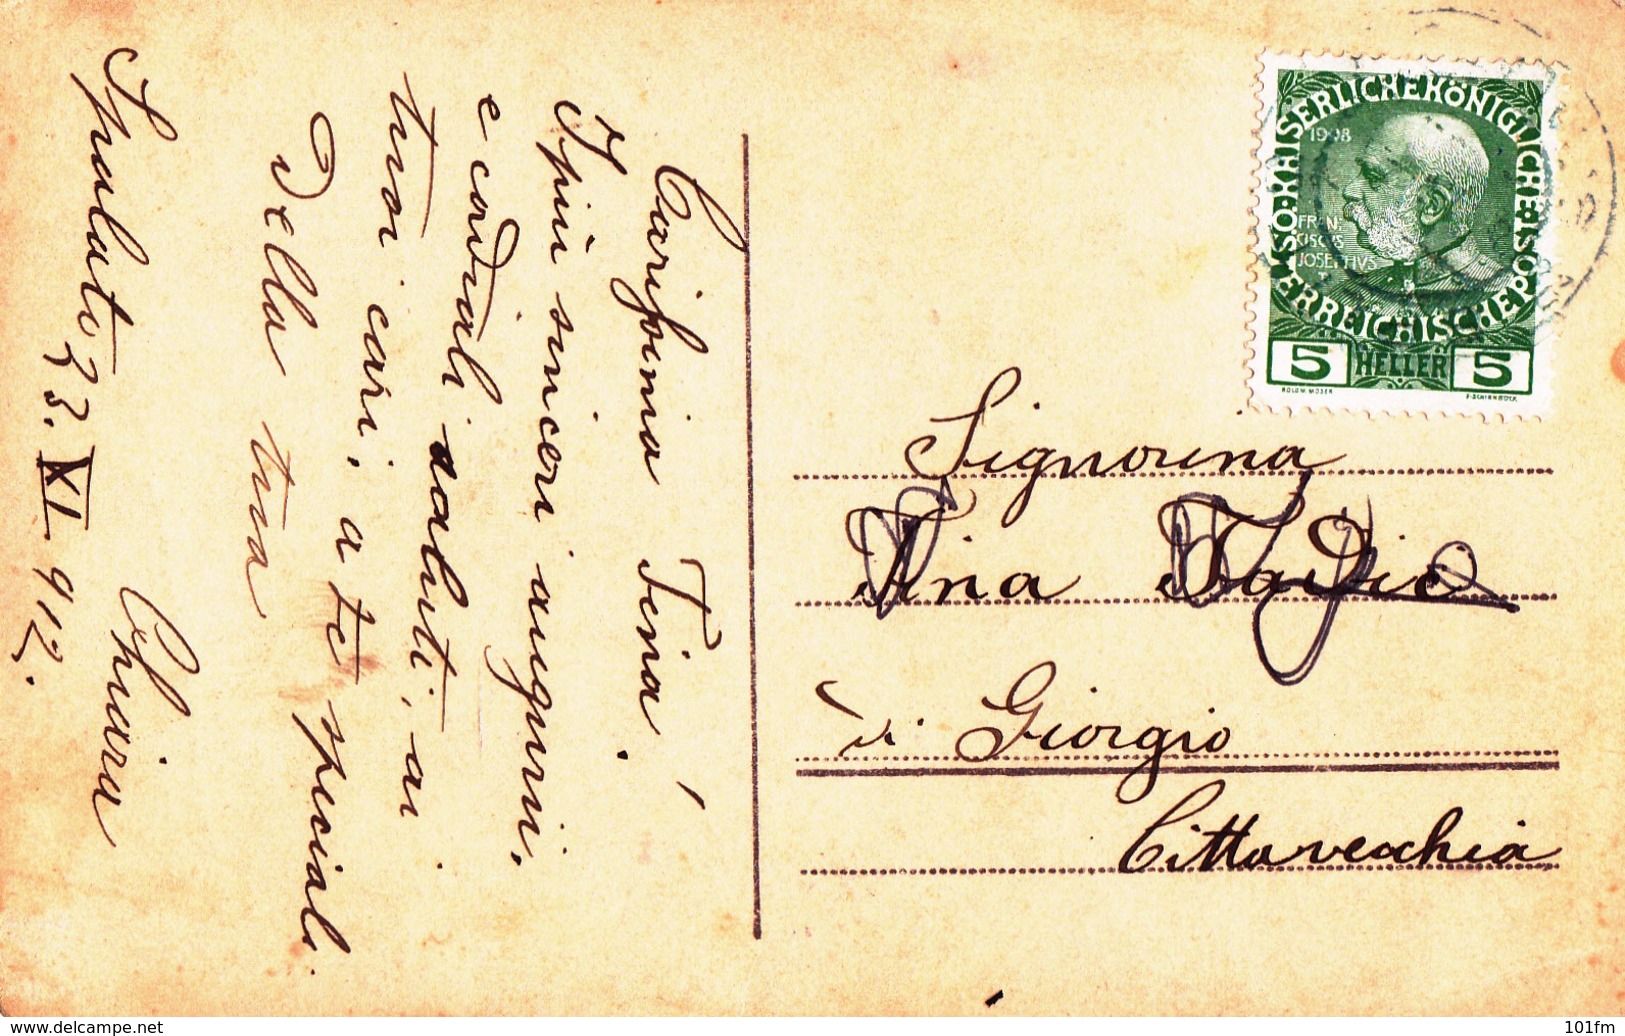 Carissima Tina!
I più sinceri auguri,
e cordiali saluti, ai
tuoi cari, a te speciali.
Della tua
Chiara
Spalato 23. XI 912.
K.K. ÖSTERREICHISCHE POST
KAISERLICHE KÖNIGLICHE ÖSTERREICHISCHE POST
1908
FRAN
CISCVS
JOSEPHVS
I
5 HELLER 5
KOLOM. MOSER
F. SCHIRNBÖCK
Signorina
Tina Tadic
di Giorgio
Cittavecchia
www.delcampe.net
101fm